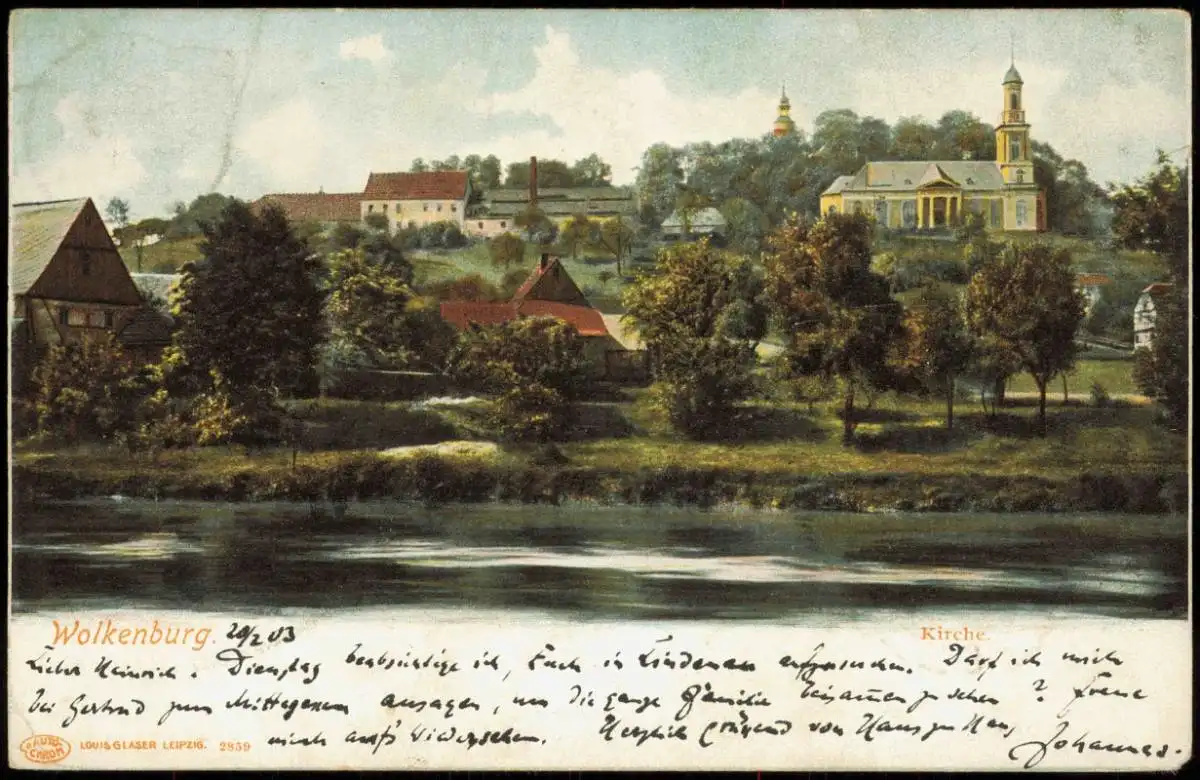 Wolkenburg. 20/2 03
Kirche.
Lieber Heinrich. Dienstag beabsichtige ich, Euch in Lindenau aufzusuchen. Darf ich mich
bei Gertrud zum Mittagessen ansagen, um die ganze Familie beisammen zu sehen? Freue
mich auf's Wiedersehen. Herzlich grüßend von Haus zu Haus,
Johannes.
AUTO CHROM
LOUIS GLASER LEIPZIG. 2859